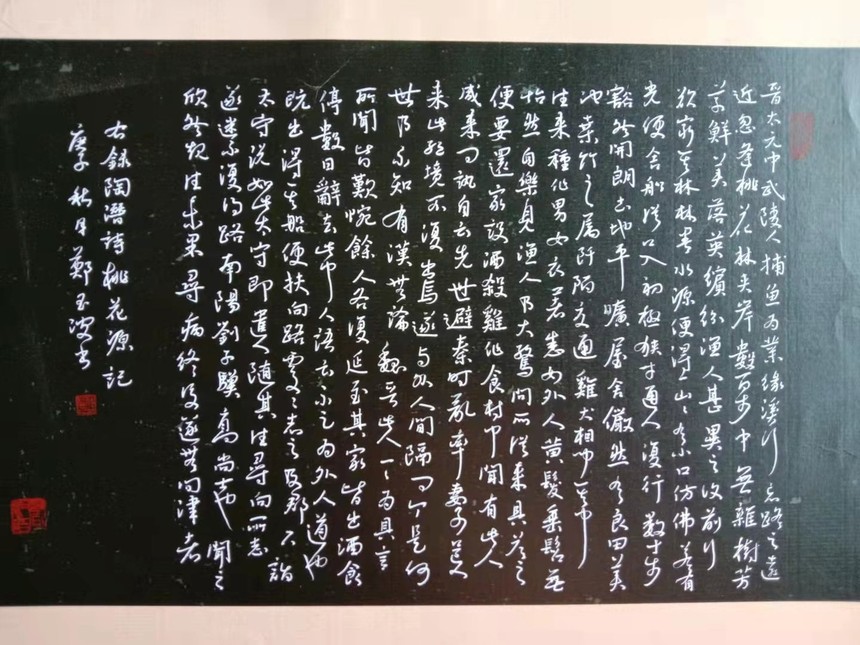 晋太元中武陵人捕鱼为業缘溪行忘路之遠
近忽逢桃花林夹岸數百步中無雜樹芳
草鮮美落英繽紛渔人甚異之復前行
欲窮其林林尽水源便得一山山有小口仿佛若有
光便舍船從口入初極狭才通人復行數十步
豁然開朗土地平曠屋舍儼然有良田美
池桑竹之属阡陌交通雞犬相聞其中
往来種作男女衣著悉如外人黄髮垂髫並
怡然自樂見渔人乃大驚问所從来具答之
便要還家設酒殺雞作食村中聞有此人
咸来问訊自云先世避秦时亂率妻子邑人
来此絕境不復出焉遂与外人間隔问今是何
世乃不知有漢無論魏晋此人一一为具言
所聞皆歎惋餘人各復延至其家皆出酒食
停數日辭去此中人語云不足为外人道也
既出得其船便扶向路處處志之及郡下詣
太守说如此太守即遣人随其往尋向所志
遂迷不復得路南陽劉子驥高尚士也聞之
欣然規往未果尋病終後遂無问津者
右録陶潛詩桃花源記
庚子秋月鄭玉波书